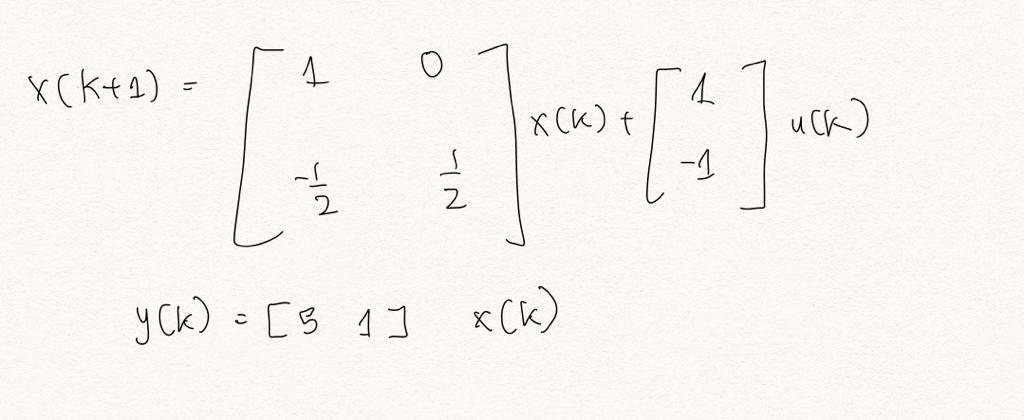 x(k+1) = [1 0; -1/2 1/2] x(k) + [1; -1] u(k)
y(k) = [5 1] x(k)